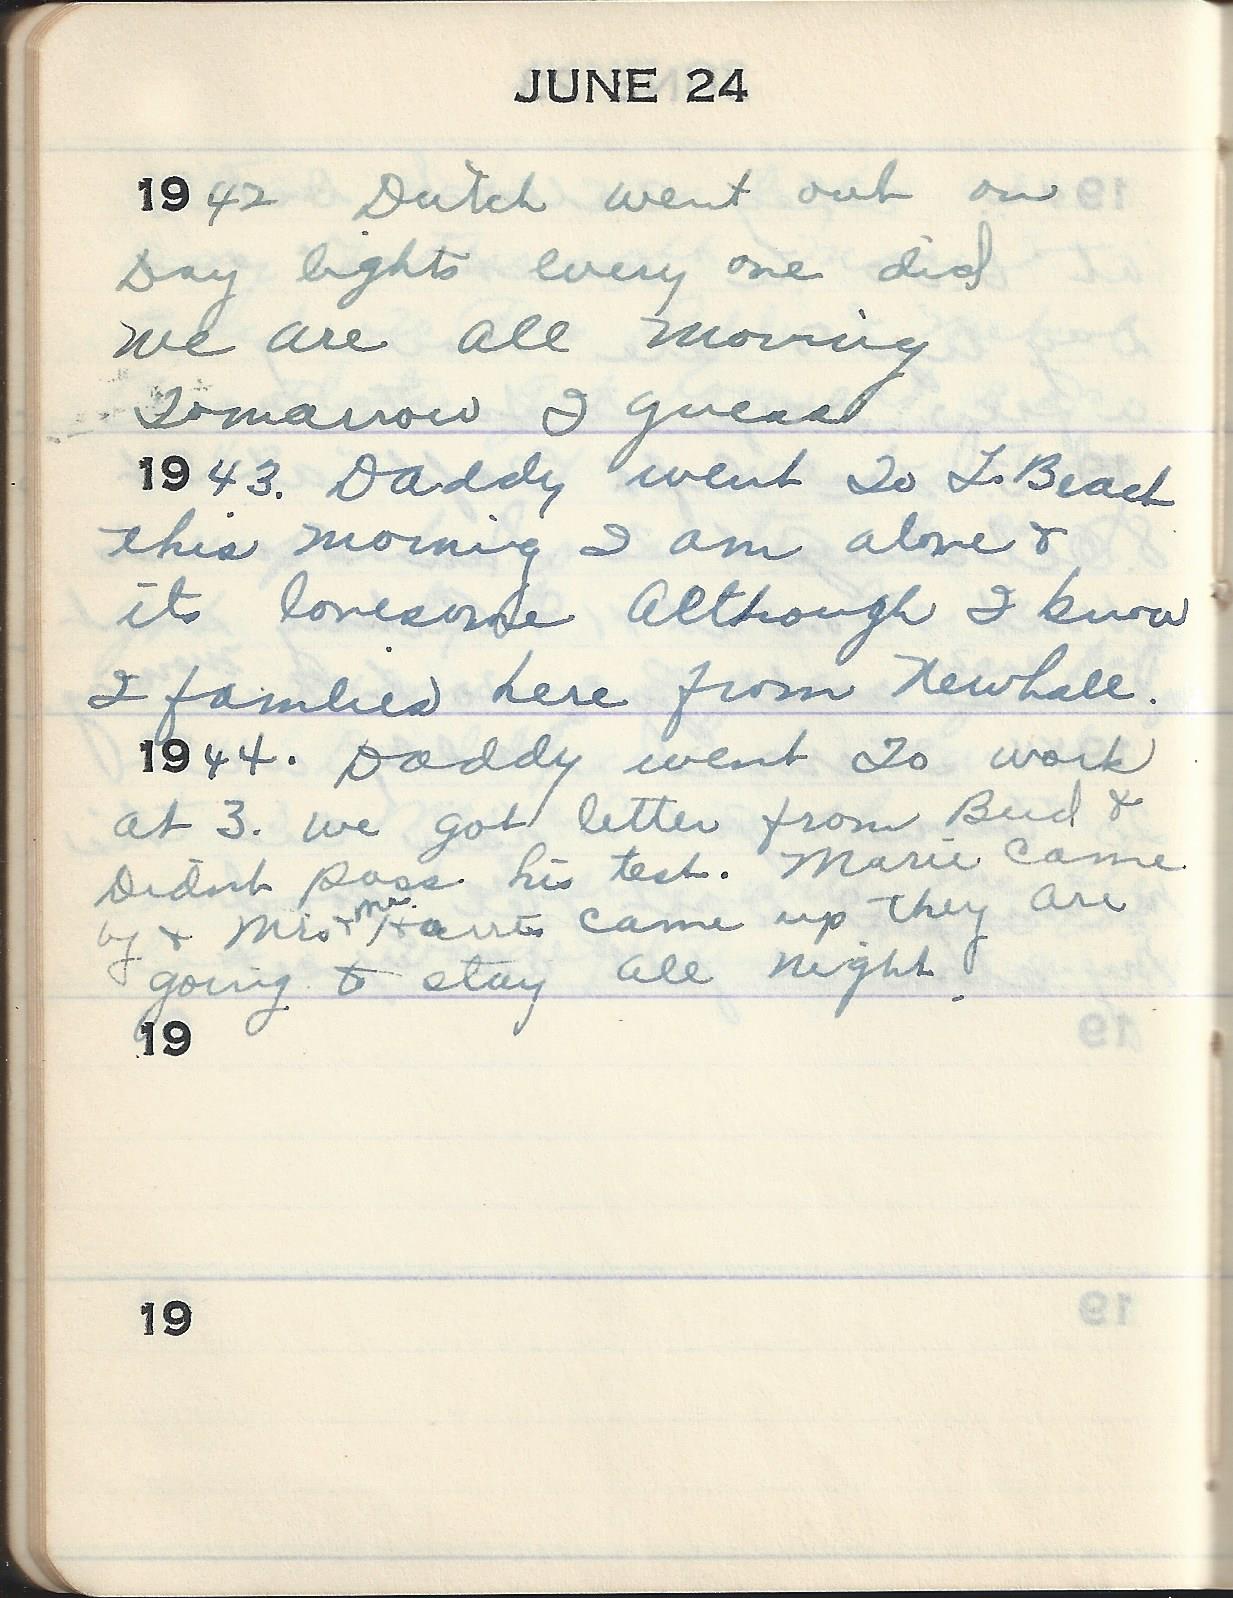 JUNE 24
1942 Dutch went out on
Day lights every one did
We are all moving
Tomarrow I guess
1943. Daddy went To L. Beach
this morning I am alone &
its lonesome Although I know
2 families here from Newhall.
1944. Daddy went To work
at 3. we got letter from Bud &
Didnt pass his test. Marie came
by & Mrs & Mr. Harris came up they are
going to stay all night.
19
19